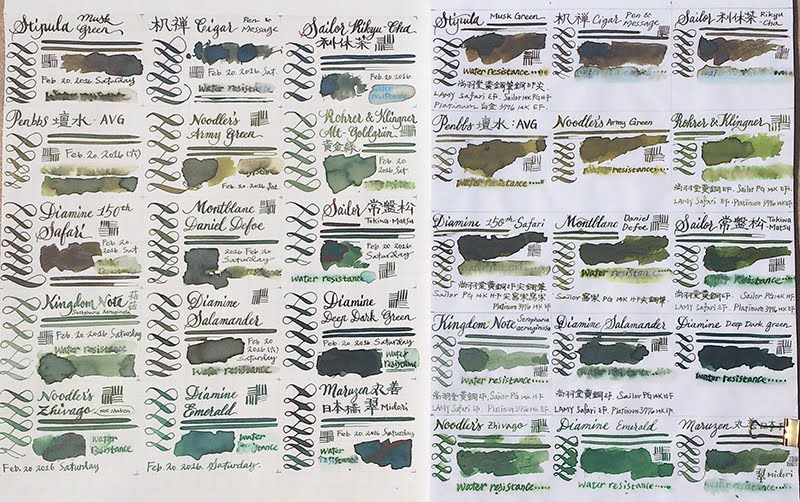 Stipula Musk Green
Feb. 20. 2016 Saturday
water resistance
机禅 Cigar Pen & Message
Feb. 20. 2016. Sat.
Water resistance
Sailor Rikyu Cha
利休茶
Feb. 20. 2016.
water resistance
Penbbs 壇水: AVG
Feb. 20. 2016 (六)
Noodler's Army Green
Feb. 20. 2016. Sat
Rohrer & Klingner
Alt-Goldgrün
黄金綠
Feb. 20 2016 Sat
Diamine 150th Safari
Feb. 20 2016 Sat
Montblanc
Daniel Defoe
2016 Feb. 20 Saturday
Sailor 常盤松
Tokiwa-Matsu
Feb. 20. 2016 Saturday
Water resistance
Kingdom Note
Feb. 20. 2016 Saturday
Water resistance
Diamine Salamander
Feb. 20 2016 (六) Saturday
Diamine
Deep Dark Green
Feb. 20 2016 Saturday
Water resistance
Noodler's
Zhivago
Water resistance
Feb. 20 2016 Saturday
Diamine
Emerald
Water resistance
Feb. 20. 2016. Saturday.
Maruzen 丸善
日本橋 翠 Midori
Feb. 20. 2016 Saturday
Water resistance
Stipula Musk Green
water resistance
尚羽堂黄銅
LAMY Safari EF. Sailor PG MF
Platinum 白金 3776 MK EF.
机禅 Cigar Pen & Message
Sailor 利休茶 Rikyu-Cha
Penbbs 壇水: AVG
water resistance
Noodler's Army Green
resistance
Rohrer & Klingner
尚羽堂黄銅EF. Sailor PG MK EF
LAMY Safari EF. Platinum 3776 MK EF.
Diamine 150th Safari
Water resistance
Platinum 3776 EF
Montblanc Daniel Defoe
Water resistance
Sailor 常盤松 Tokiwa-Matsu
Kingdom Note
water resistance
尚羽堂黄銅EF. Sailor PG MK EF
LAMY Safari EF. Platinum 3776 MK EF.
Diamine Salamander
water resistance
尚羽堂黄銅EF. Sailor PG MK EF
LAMY Safari EF. Platinum 3776 MK EF.
Diamine Deep Dark green
Water resistance
Noodler's Zhivago
water resistance
Diamine Emerald
water resistance
Maruzen
翠 Midori